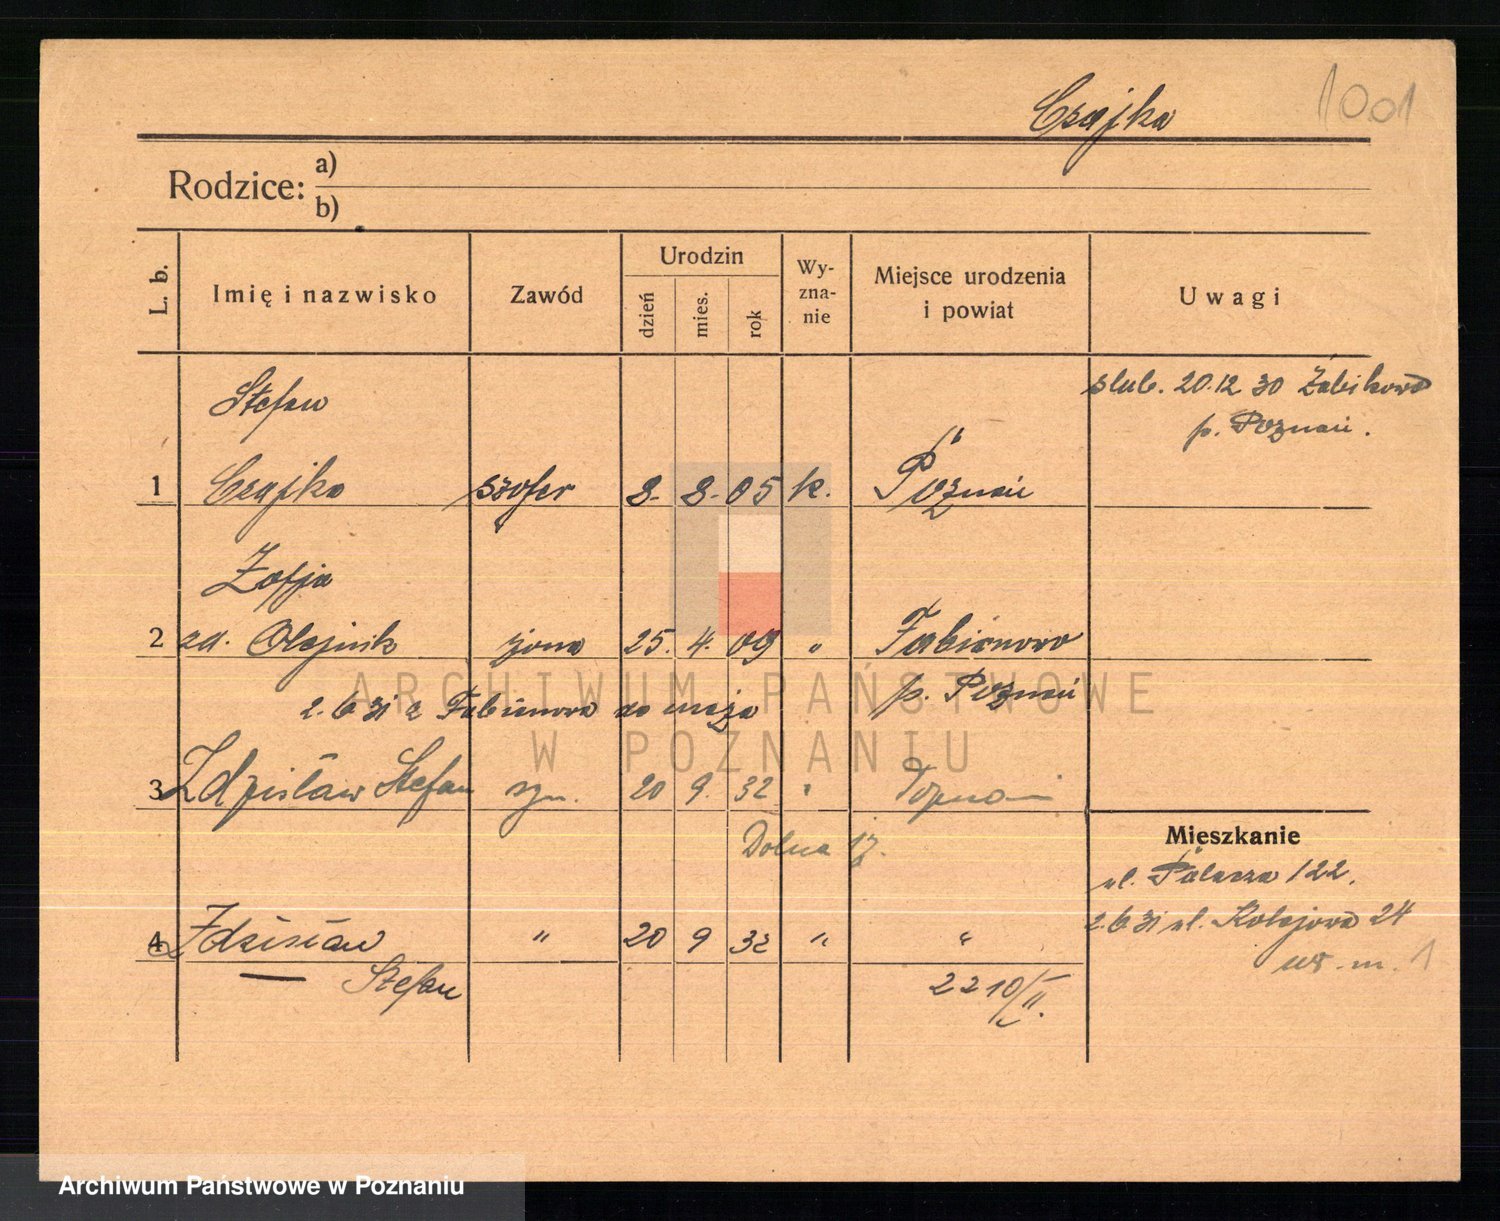 Czajka 1001
Rodzice: a)
b)
L. b. Imię i nazwisko Zawód Urodzin dzień mies. rok Wy-zna-nie Miejsce urodzenia i powiat Uwagi
Stefan ślub. 20.12 30 Żabikowo
p. Poznań.
1 Czajka szofer 8. 8. 05 k. Poznań
Zofja
2 zd. Olejnik żona 25. 4. 09 " Fabianowo
p. Poznań
2.6 31 z Fabianowa do męża
ARCHIWUM PAŃSTWOWE
W POZNANIU
3 Zdzisław Stefan syn. 20 9. 32 " Poznań
Mieszkanie
Dolna 17.
ul. Palacza 122.
2.6 31 ul. Kolejowa 24
m. 1
4 Zdzisław " 20 9 32 " "
Stefan 22 10/II.
Archiwum Państwowe w Poznaniu